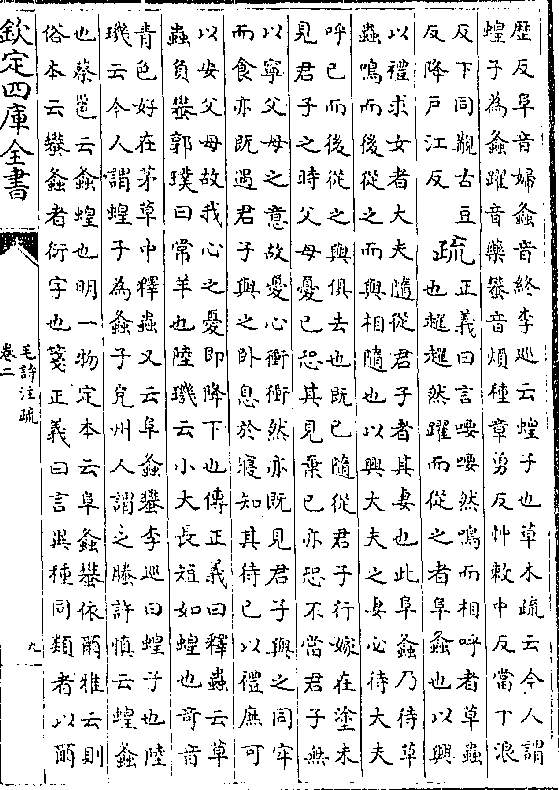 歴反阜音婦螽音終李巡云蝗子也草木疏云今人謂
蝗子為螽躍音樂蠜音煩種章勇反忡敕中反當丁浪
反下同覯古豆
反降戶江反
疏
正義曰言喓喓然鳴而相呼者草蟲
也趯趯然躍而從之者阜螽也以興
以禮求女者大夫隨從君子者其妻也此阜螽乃待草
蟲鳴而後從之而與相隨也以興大夫之妻必待大夫
呼已而後從之與俱去也既已隨從君子行嫁在塗未
見君子之時父母憂已恐其見棄已亦恐不當君子無
以寧父母之意故憂心衝衝然亦既見君子與之同牢
而食亦既遇君子與之卧息於寢知其待已以禮庶可
以安父母故我心之憂即降下也傳正義曰釋蟲云草
蟲負蠜郭璞曰常羊也陸璣云小大長短如蝗也奇音
青色好在茅草中釋蟲又云阜螽蠜李巡曰蝗子也陸
璣云今人謂蝗子為螽子兗州人謂之螣許慎云蝗螽
也蔡邕云螽蝗也明一物定本云阜螽蠜依爾雅云則
俗本云蠜螽者衍字也箋正義曰言異種同類者以爾
欽定四庫全書
毛詩注疏
卷二
九